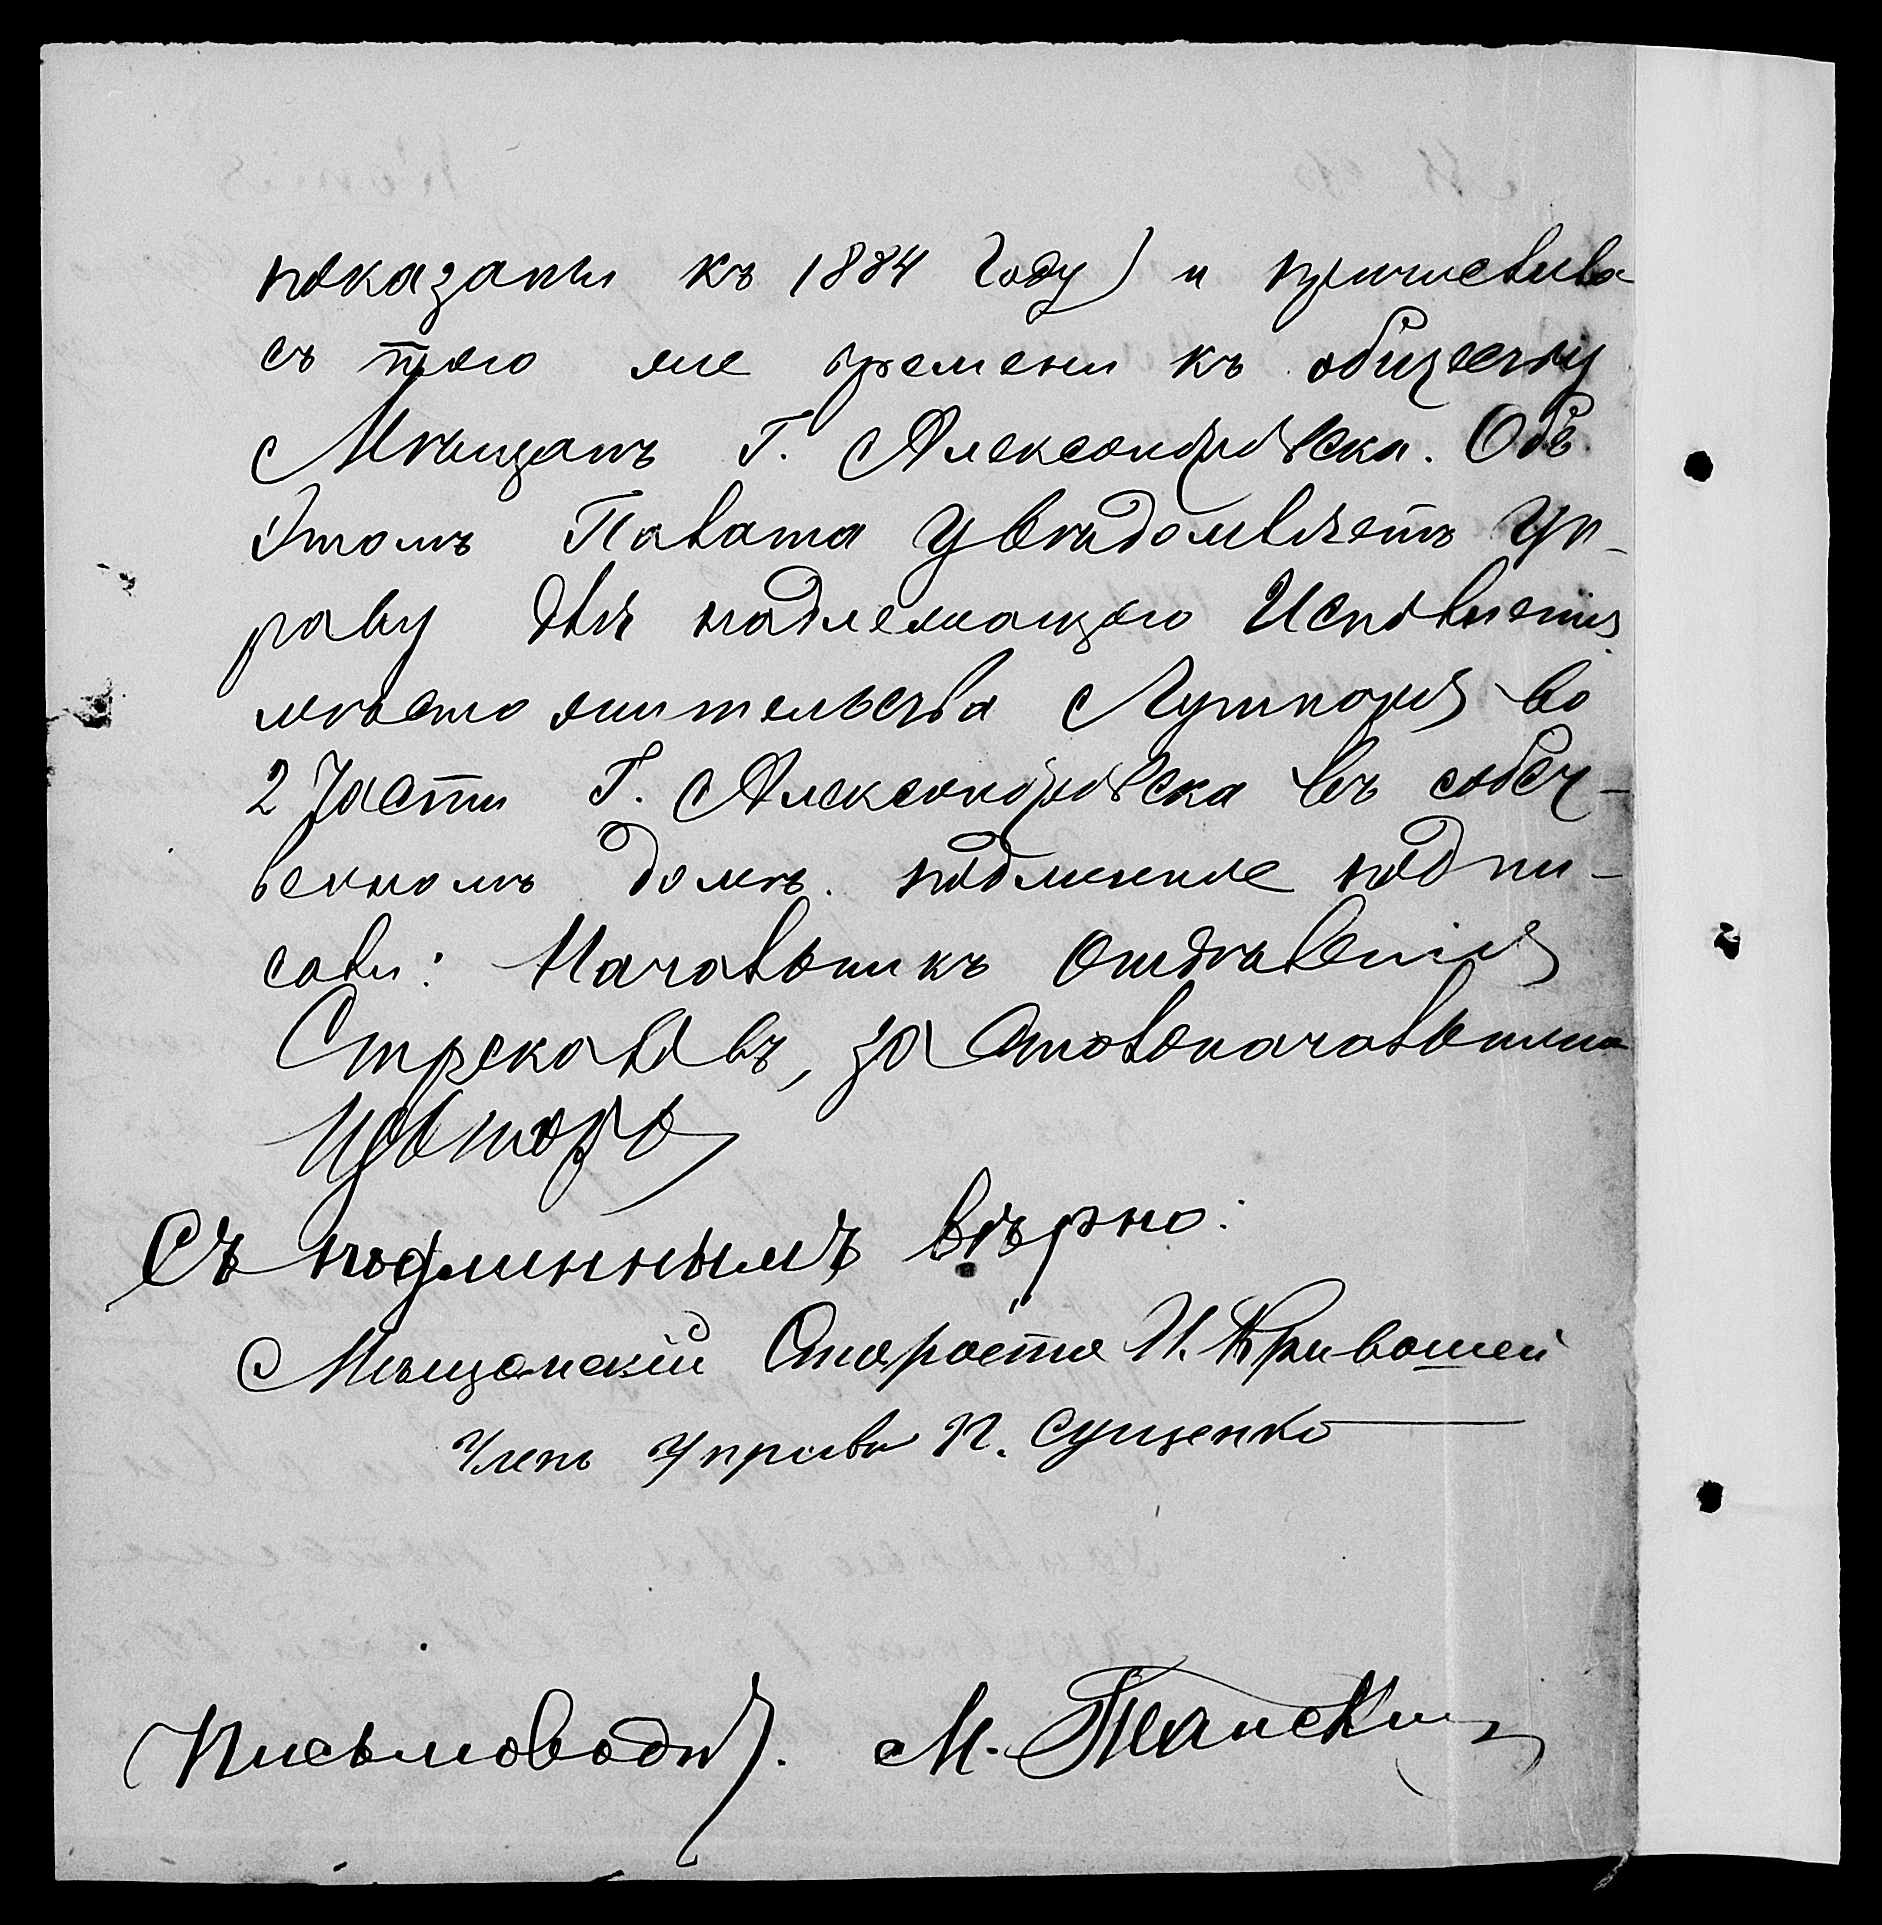 показаны къ 1884 году) и причислила
съ того же времени къ обществу
Мѣщанъ Г. Александровска. Объ
Этомъ Палата Увѣдомляетъ Уп-
раву для надлежащаго Исполненія
мѣсто жительства во
2 Части Г. Александровска въ собст-
венномъ домѣ. подлинное подпи-
сали: Начальникъ Отдѣленія
Стрекаловъ, за Столоначальника
Съ подлиннымъ вѣрно:
Мѣщанскій Староста И. Кривошей
Членъ Управы П. Сущенко
Письмовод. М.